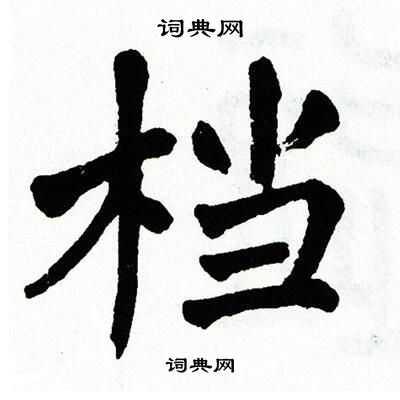 词典网
档
词典网